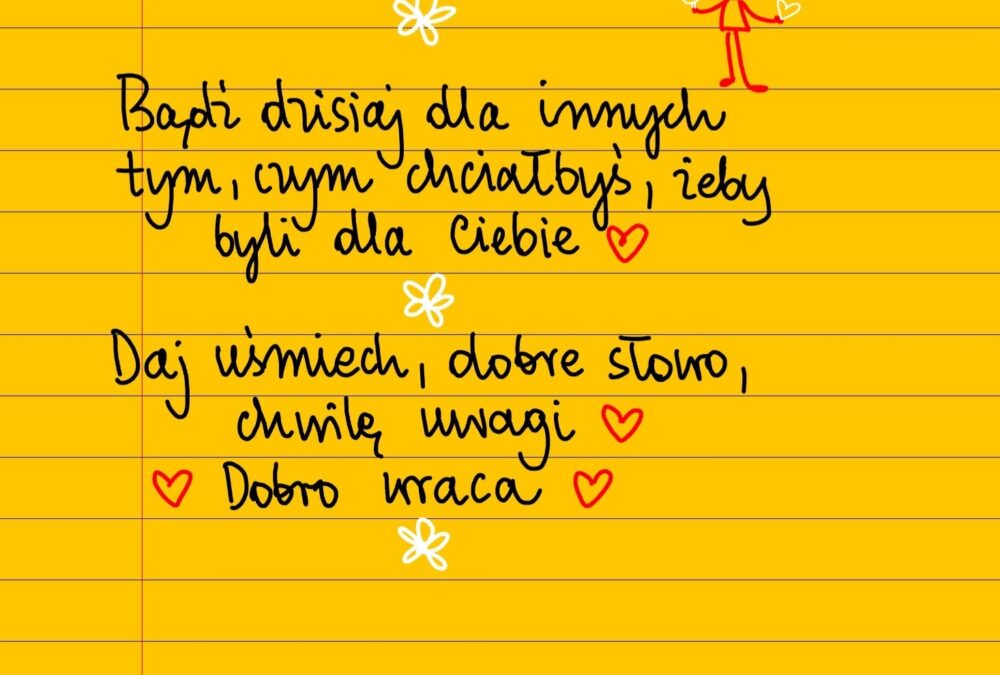 Bądź dzisiaj dla innych
tym, czym chciałbyś, żeby
byli dla Ciebie
Daj uśmiech, dobre słowo,
chwilę uwagi
Dobro wraca